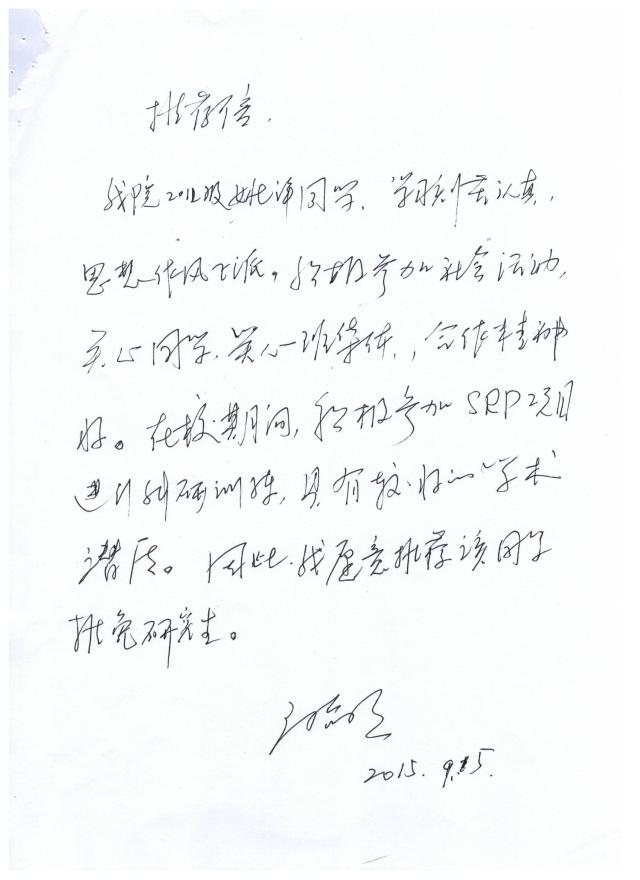 推荐信
我院2012级姚泽同学，学习刻苦认真，
思想作风正派。积极参加社会活动，
关心同学、关心班集体，合作精神
好。在校期间，积极参加SRP项目
进行科研训练，具有较好的学术
潜质。因此，我愿意推荐该同学
推免研究生。
2015.9.15.